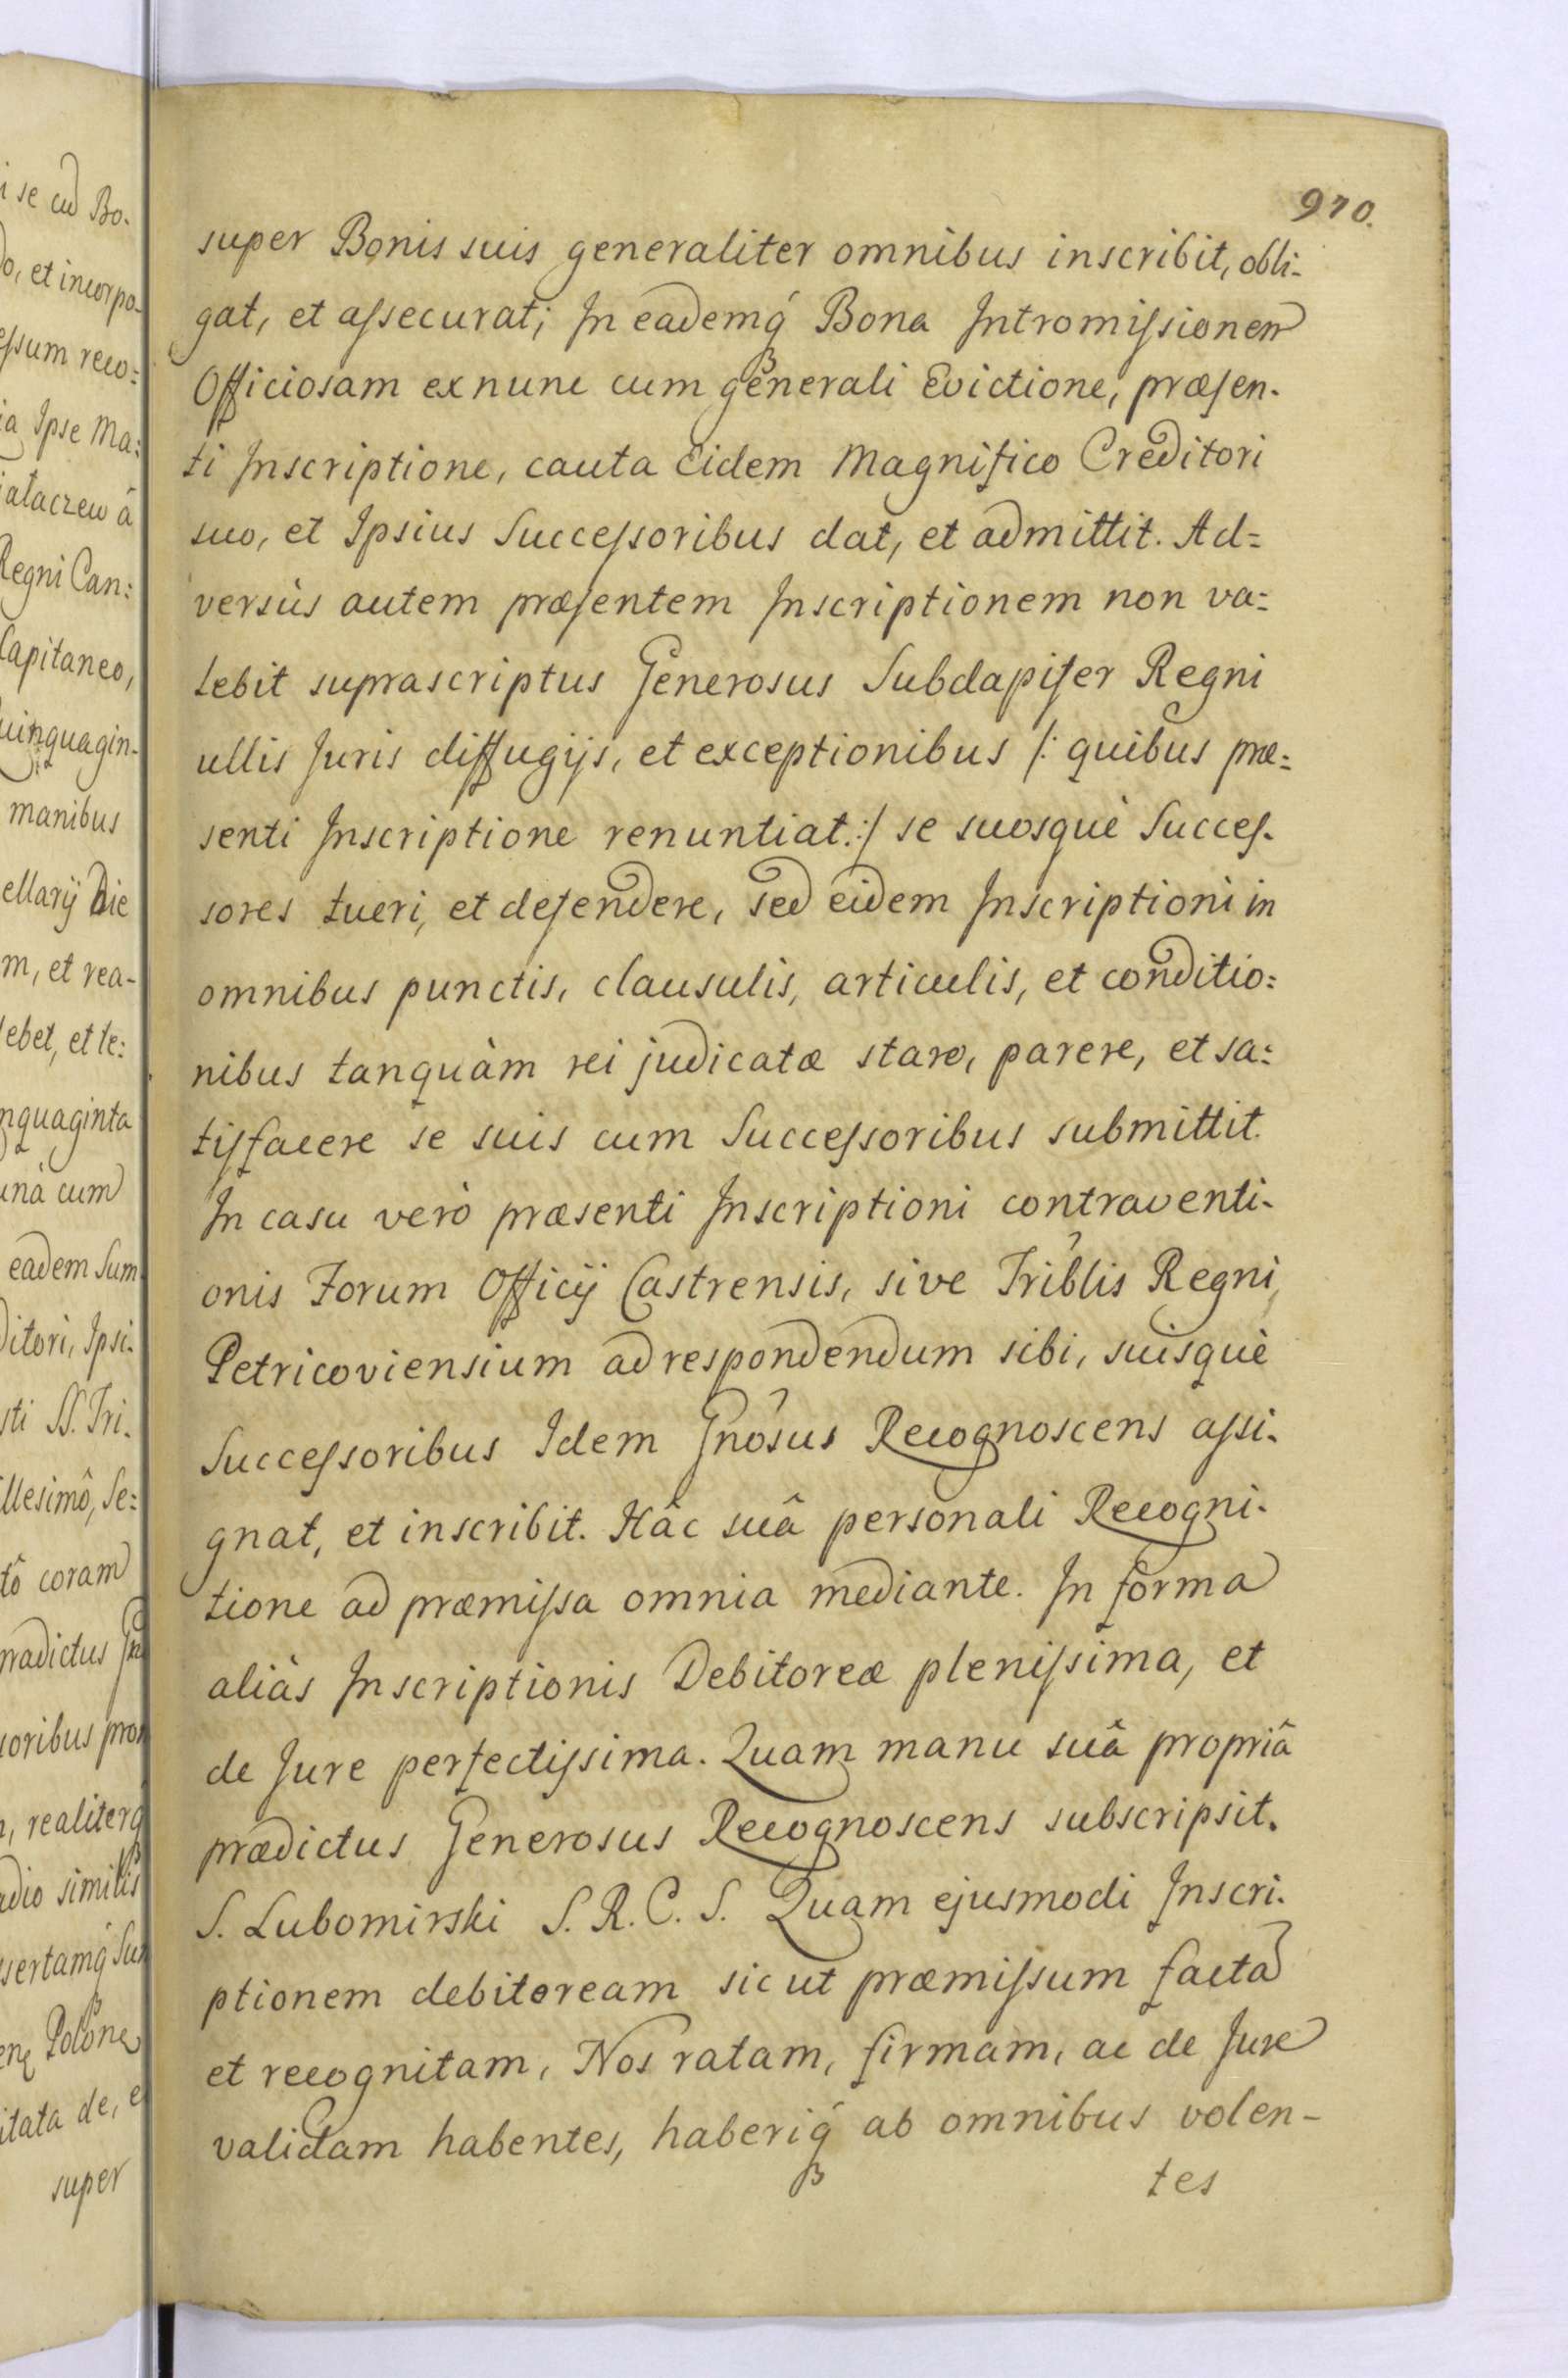 i se cũ Bo-
o, et incorpo-
essum reco=
ia Ipse Ma:
iataczew â
Regni Can:
Capitaneo,
uinquagin-
manibus
ellarij Die
m, et rea-
ebet, et te:
nquaginta
unà cum
eadem Sum
ditori, Ipsi-
sti SS. Tri-
llesimô, Se=
tô coram
radictus
soribus
, realiterq́
adio similis
sertamq́ Sum
Polone
itata de, e
super
970.
super Bonis suis generaliter omnibus inscribit, obli-
gat, et assecurat; In eademq́ Bona Intromissionem
Officiosam ex nunc cum generali Evictione, præsen-
ti Inscriptione, cauta Eidem Magnifico Creditori
suo, et Ipsius Successoribus dat, et admittit. Ad=
versùs autem præsentem Inscriptionem non va=
lebit suprascriptus Generosus Subdapifer Regni
ullis Juris diffugijs, et exceptionibus /: quibus præ=
senti Inscriptione renuntiat :/ se suosquè Succes-
sores tueri, et defendere, sed eidem Inscriptioni in
omnibus punctis, clausulis, articulis, et conditio=
nibus tanquàm rei judicatæ stare, parere, et sa=
tisfacere se suis cum Successoribus submittit.
In casu verò præsenti Inscriptioni contraventi-
onis Forum Officij Castrensis, sive Triblis Regni,
Petricoviensium ad respondendum sibi, suisquè
Successoribus Idem Gnosus Recognoscens assi-
gnat, et inscribit. Hâc suâ personali Recogni-
tione ad præmissa omnia mediante. In forma
aliàs Inscriptionis Debitoreæ plenissima, et
de Jure perfectissima. Quam manu suâ propriâ
prædictus Generosus Recognoscens subscripsit.
S. Lubomirski S. R. C. S. Quam ejusmodi Inscri-
ptionem debitoream sic ut præmissum facta
et recognitam, Nos ratam, firmam, ac de Jure
validam habentes, haberiq́ ab omnibus volen-
tes